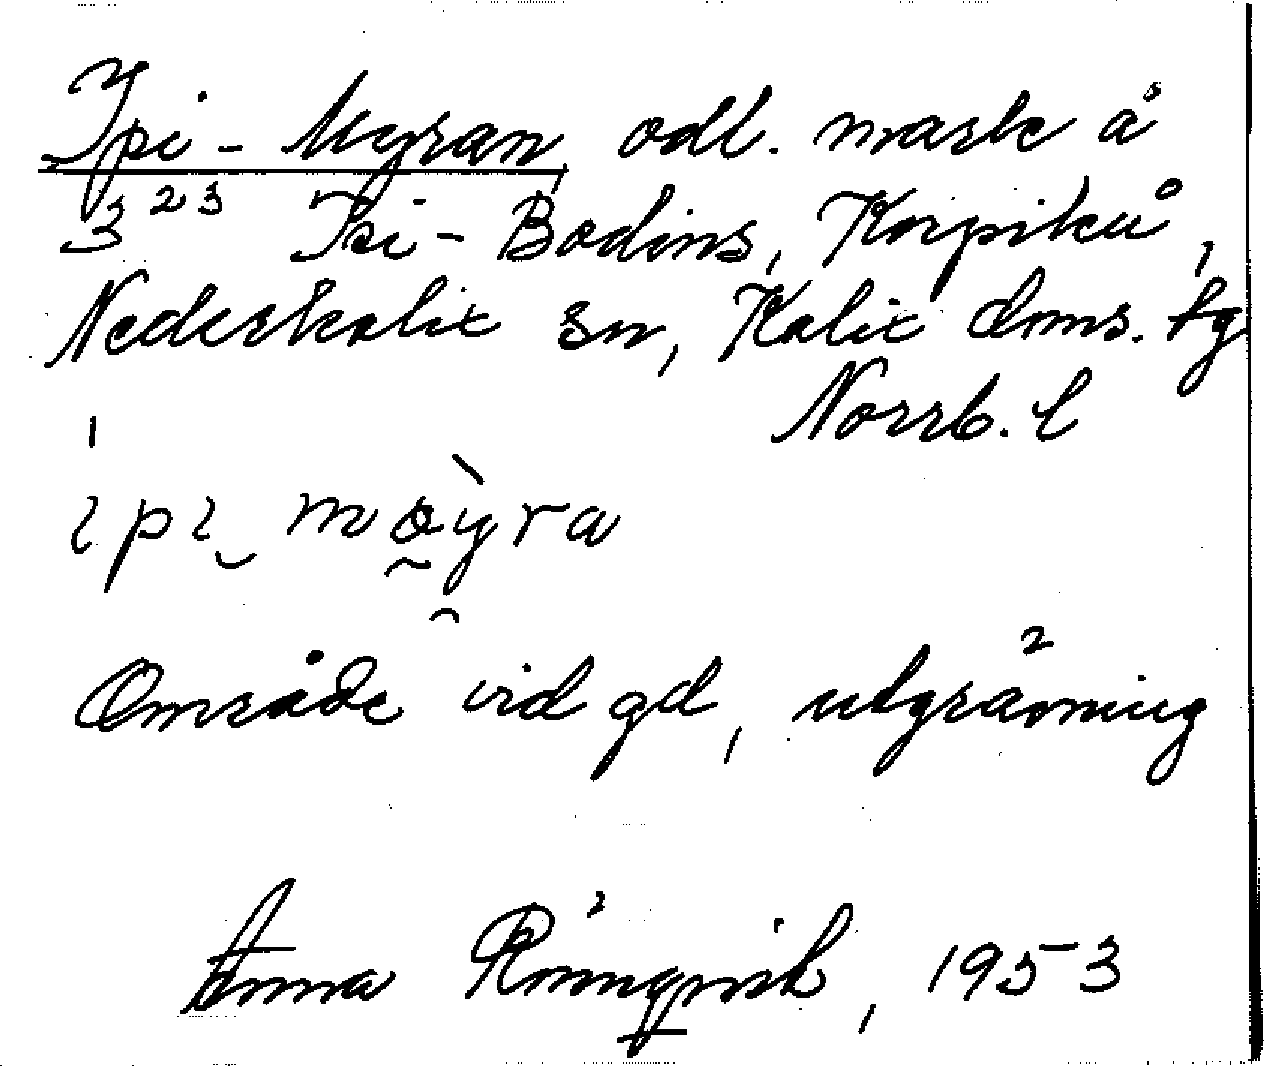 Ipi-Myran, odl. mark å
3²³ Isi-Bodins, Korpikå,
Nederkalix sn, Kalix doms. tg
Norrb. l
ipi møyra
Område vid gd, utgrävning
Anna Rönnqvist, 1953